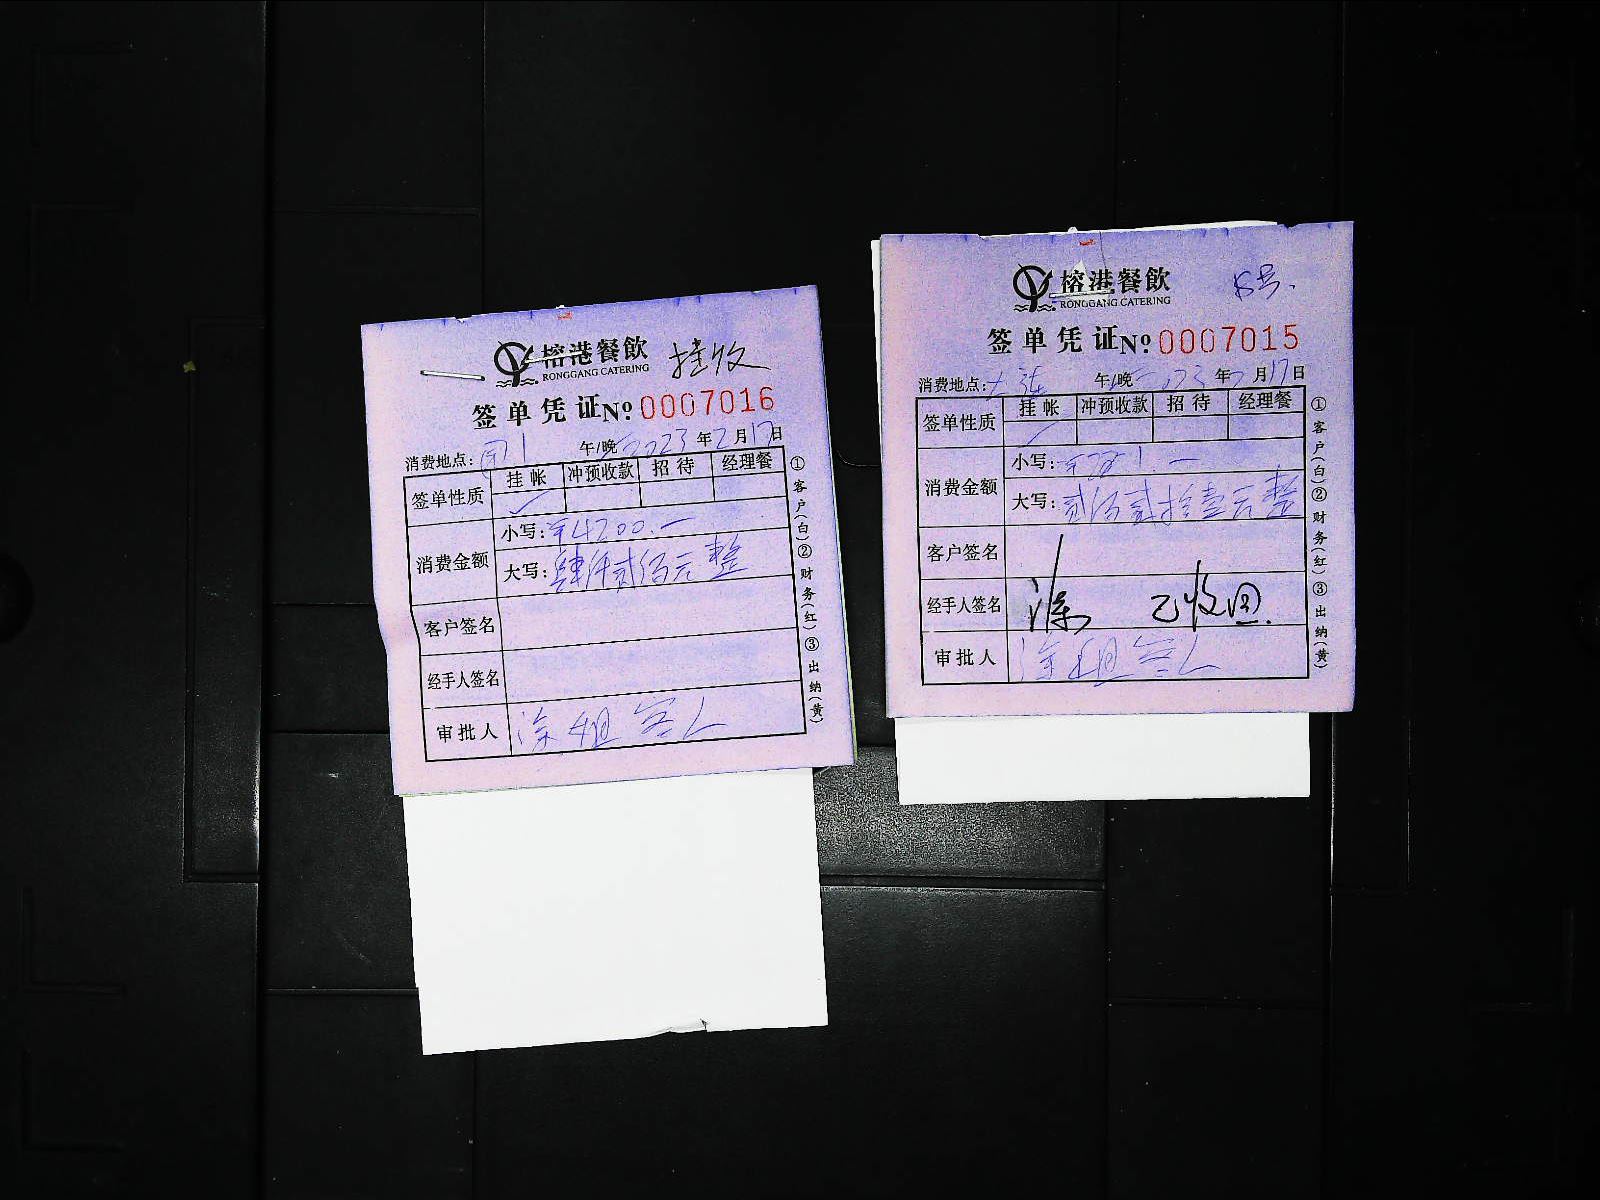 榕港餐飲
RONGGANG CATERING
挂收
签单凭证 No 0007016
消费地点: 午/晚 2023年2月17日
签单性质 挂帐 冲预收款 招待 经理餐
✓
消费金额 小写: ¥4200.一
大写: 肆仟贰佰元整
客户签名
经手人签名
审批人 涂姐签了
①客户(白)②财务(红)③出纳(黄)
榕港餐飲
RONGGANG CATERING
签单凭证 No 0007015
消费地点: 午/晚 2023年2月17日
签单性质 挂帐 冲预收款 招待 经理餐
✓
消费金额 小写:
大写: 元整
客户签名
经手人签名 涂 已收回.
审批人 涂姐签了
①客户(白)②财务(红)③出纳(黄)